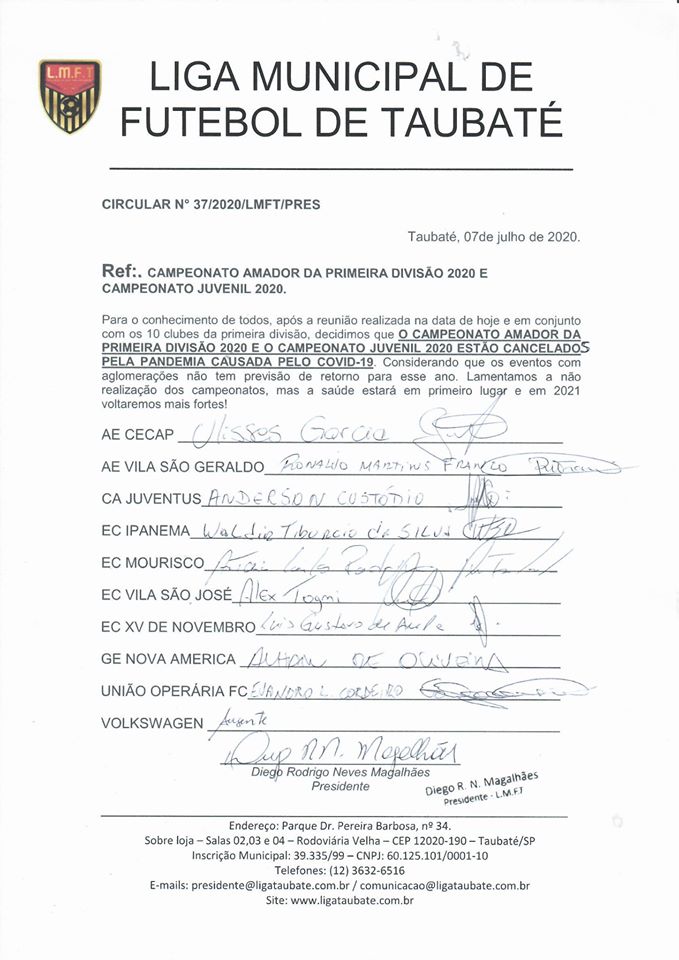 L.M.F.T
LIGA MUNICIPAL DE
FUTEBOL DE TAUBATÉ
CIRCULAR N° 37/2020/LMFT/PRES
Taubaté, 07de julho de 2020.
Ref:. CAMPEONATO AMADOR DA PRIMEIRA DIVISÃO 2020 E
CAMPEONATO JUVENIL 2020.
Para o conhecimento de todos, após a reunião realizada na data de hoje e em conjunto
com os 10 clubes da primeira divisão, decidimos que O CAMPEONATO AMADOR DA
PRIMEIRA DIVISÃO 2020 E O CAMPEONATO JUVENIL 2020 ESTÃO CANCELADOS
PELA PANDEMIA CAUSADA PELO COVID-19. Considerando que os eventos com
aglomerações não tem previsão de retorno para esse ano. Lamentamos a não
realização dos campeonatos, mas a saúde estará em primeiro lugar e em 2021
voltaremos mais fortes!
AE CECAP Ulisses Garcia
AE VILA SÃO GERALDO RONALDO MARTINS FRANCO
CA JUVENTUS ANDERSON CUSTÓDIO
EC IPANEMA Waldir Tiburcio da SILVA
EC MOURISCO
EC VILA SÃO JOSÉ Alex Togni
EC XV DE NOVEMBRO Luis Gustavo de
GE NOVA AMERICA DE OLIVEIRA
UNIÃO OPERÁRIA FC EVANDRO L. CORDEIRO
VOLKSWAGEN Ausente
Diego Rodrigo Neves Magalhães
Presidente
Diego R. N. Magalhães
Presidente - L.M.F.T
Endereço: Parque Dr. Pereira Barbosa, nº 34.
Sobre loja – Salas 02,03 e 04 – Rodoviária Velha – CEP 12020-190 – Taubaté/SP
Inscrição Municipal: 39.335/99 – CNPJ: 60.125.101/0001-10
Telefones: (12) 3632-6516
E-mails: presidente@ligataubate.com.br / comunicacao@ligataubate.com.br
Site: www.ligataubate.com.br